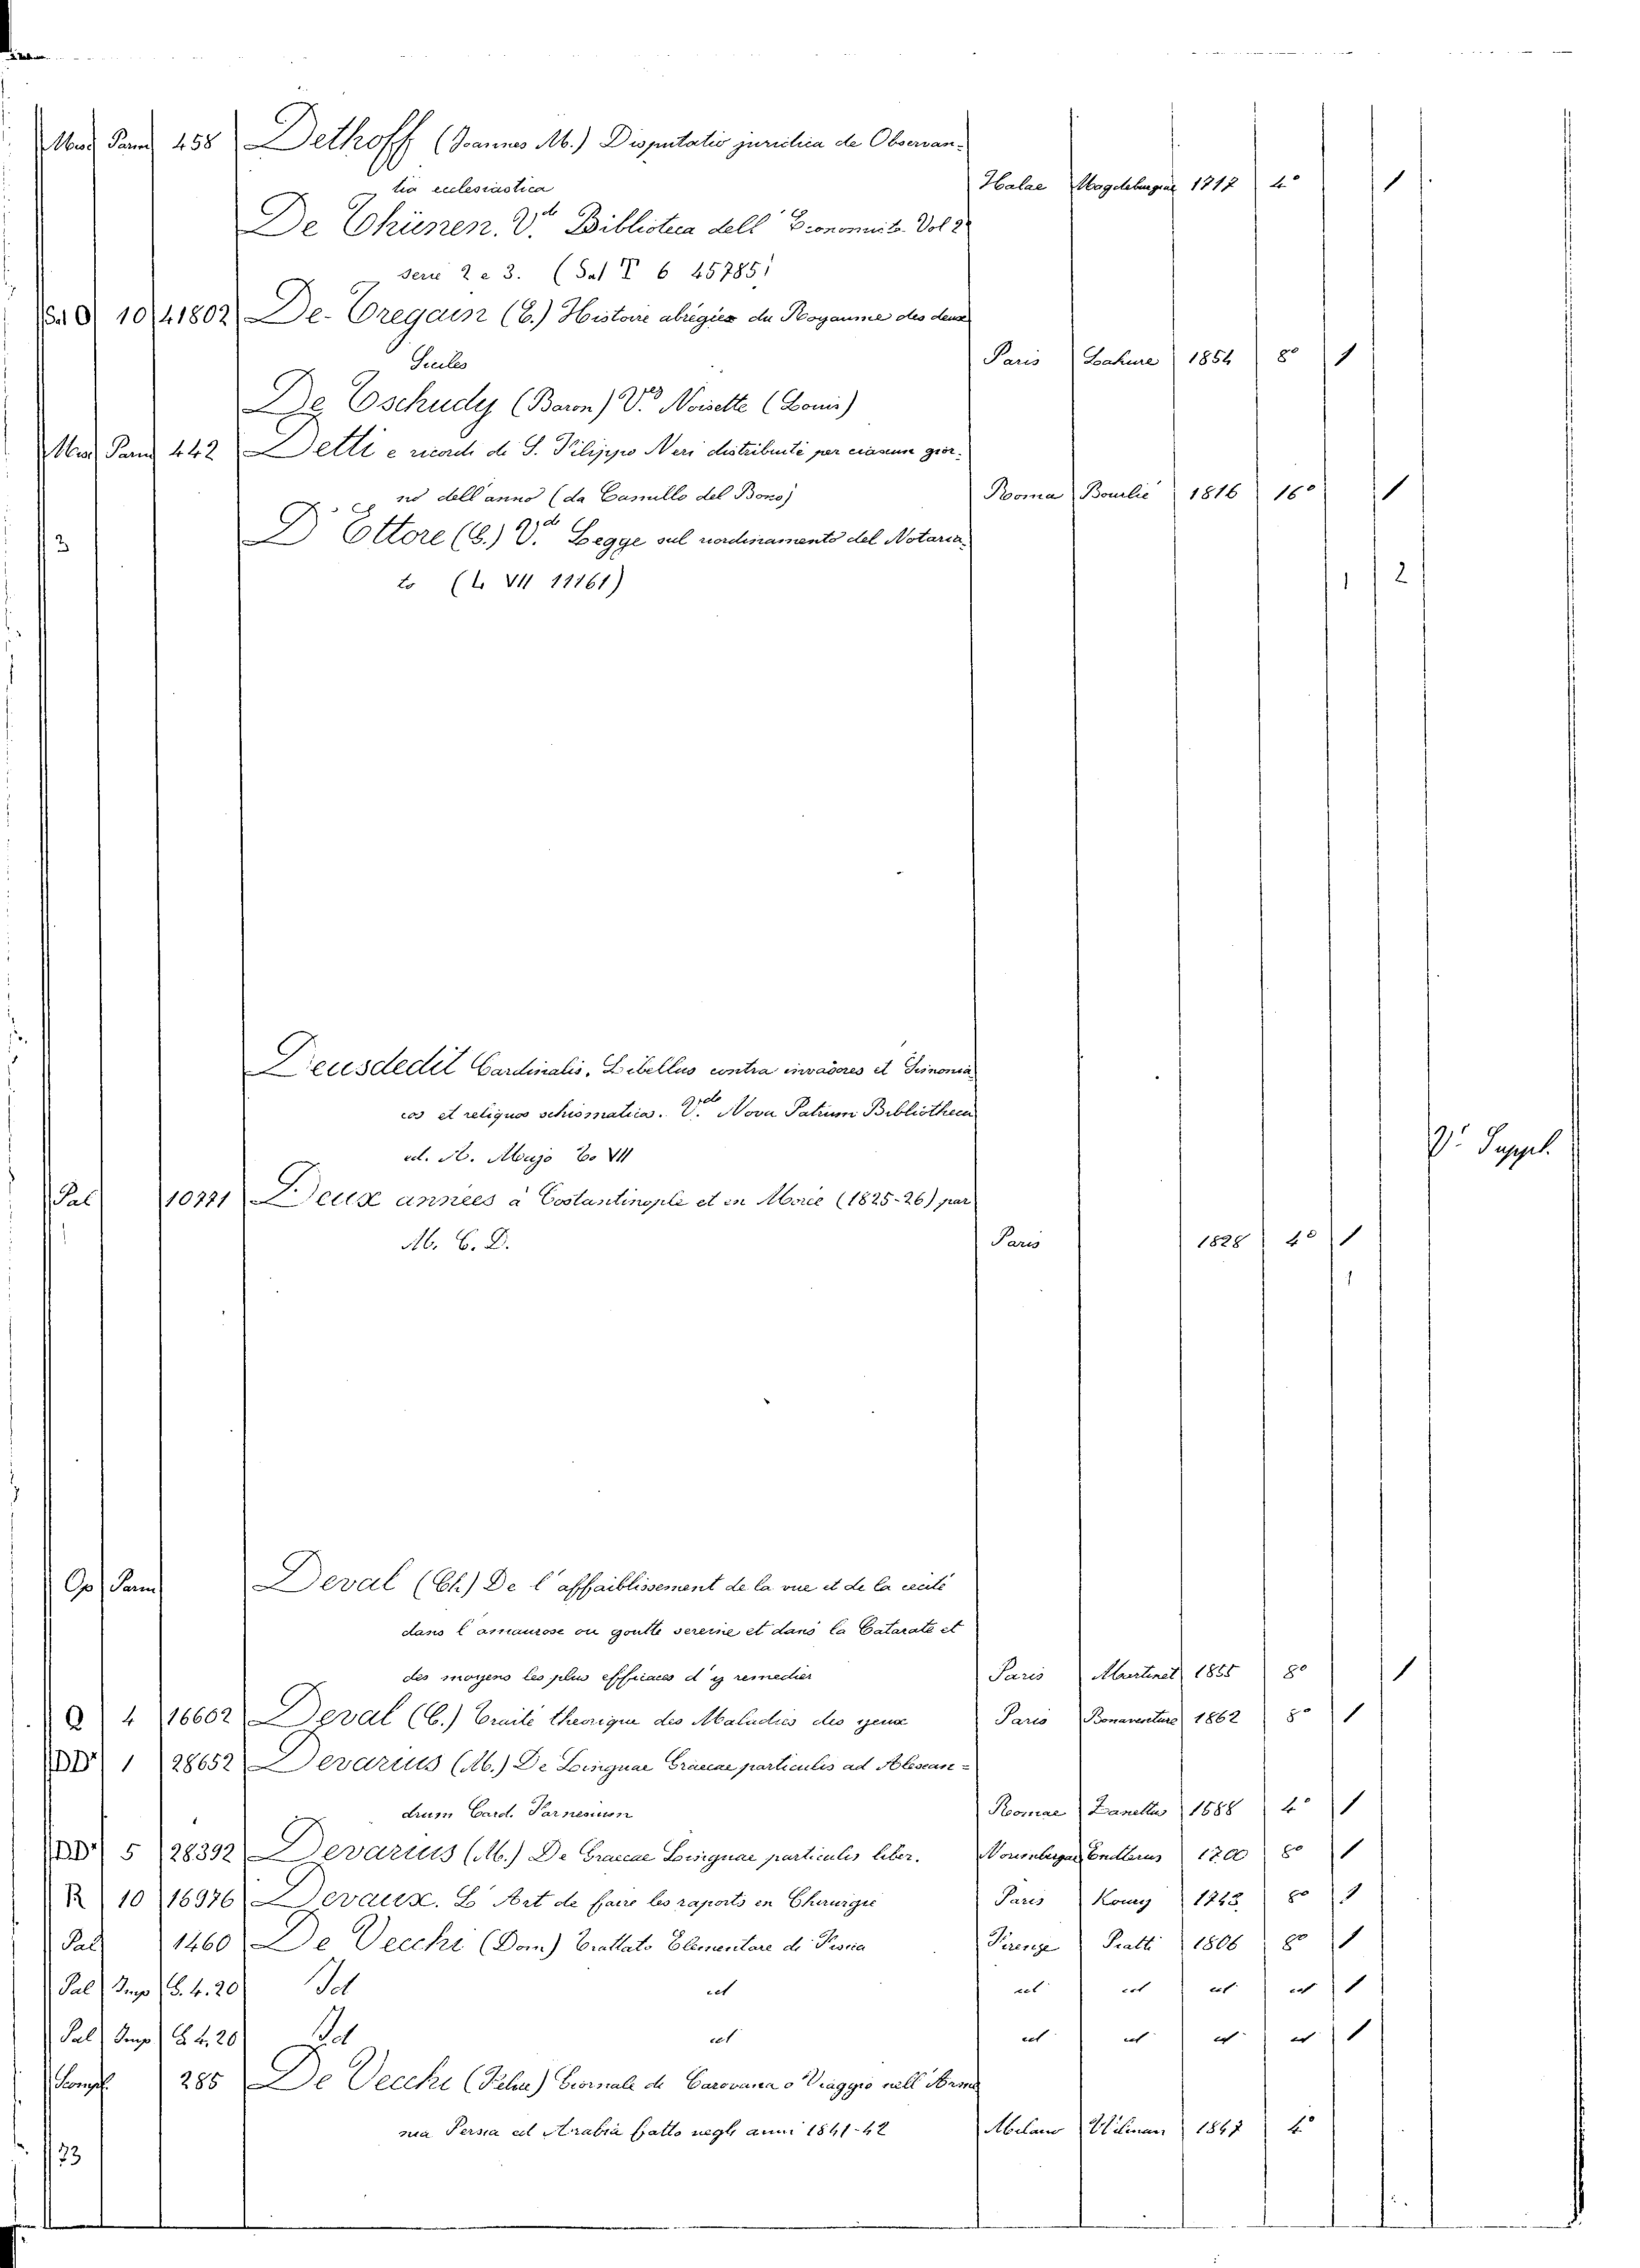 Misc Pann 458 Dethoff (Joannes M.) Disputatio juridica de Observan-
tia ecclesiastica Halae Magdeburgiae 1717 4° 1
De Thünen. Vd Biblioteca dell' Economista. Vol 2
serie 2 e 3. (Sal T 6 45785)
Sal O 10 41802 De-Tregain (E.) Histoire abrégée du Royaume des deux
Siciles Paris Lahure 1854 8° 1
De Tschudy (Baron) V. Noisette (Louis)
Misc Pann 442 Detti e ricordi di S. Filippo Neri distribuiti per ciascun gior-
no dell'anno (da Camillo del Bono) Roma Bourlié 1816 16° 1
3 D'Ettore (E.) Vd Legge sul riordinamento del Notaria-
to (L VII 11161) 1 2
Deusdedit Cardinalis. Libellus contra invasores et Simonia-
cos et reliquos schismaticos. Vde Nova Patrum Bibliotheca
ed. A. Majo T. VII Vi Suppel.
Pal 10771 Deux années à Costantinople et en Morée (1825-26) par
M. C. D. Paris 1828 4° 1
1
Op Pann Deval (Ch.) De l'affaiblissement de la vue et de la cecité
dans l'amaurose ou goutte sereine et dans la Catarate et
des moyens les plus efficaces d'y remedier Paris Martinet 1855 8° 1
Q 4 16602 Deval (C.) Traité theorique des Maladies des yeux Paris Bonaventure 1862 8° 1
DD 1 28652 Devarius (M.) De Linguae Graecae particulis ad Alexan-
drum Card. Farnesium Romae Zanettus 1588 4° 1
DD 5 28392 Devarius (M.) De Graecae Linguae particulis liber. Norimbergae Endterus 1700 8° 1
R 10 16976 Devaux. L'Art de faire les raports en Chirurgie Paris 8° 1
Pal 1460 De Vecchi (Dom.) Trattato Elementare di Fisica Firenze Piatti 1806 8° 1
Pal Imp E. 4. 20 Id id id id id id 1
Pal Imp E. 4. 20 Id id id id id id 1
285 De Vecchi (Felice) Giornale di Carovana o Viaggio nell'Arme-
nia Persia ed Arabia fatto negli anni 1841-42 Milano 1847 4°